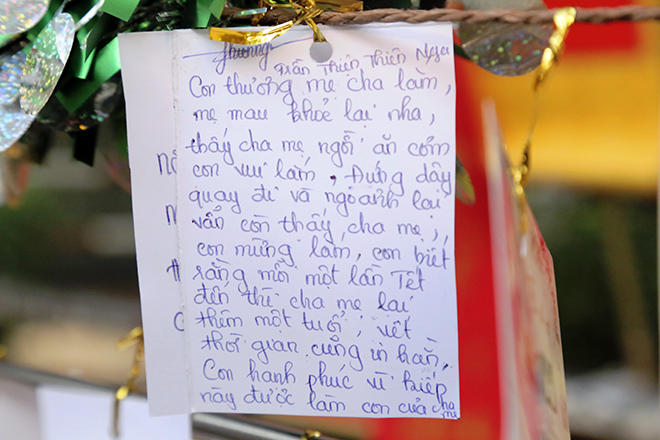 Phương
Trần Thiện Thiên Nga
Con thương mẹ cha lắm,
mẹ mau khoẻ lại nha,
thấy cha mẹ ngồi ăn cơm
con vui lắm, Đứng dậy
quay đi và ngoảnh lại
vẫn còn thấy cha mẹ,
con mừng lắm, con biết
rằng mỗi một lần Tết
đến thì cha mẹ lại
thêm một tuổi, vết
thời gian cũng in hằn,
Con hạnh phúc vì kiếp
này được làm con của cha
mẹ